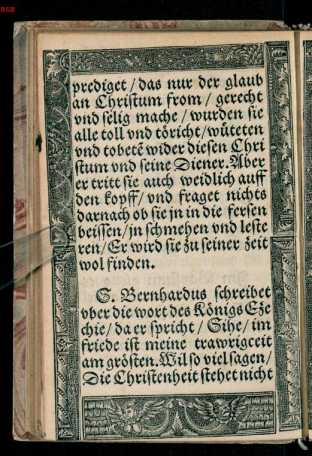 prediget / das nur der glaub
an Christum from / gerecht
vnd selig mache / wurden sie
alle toll vnd töricht / wüteten
vnd tobetē wider diesen Chri
stum vnd seine Diener. Aber
er tritt sie auch weidlich auff
den kopff / vnd fraget nichts
darnach ob sie jn in die fersen
beissen / jn schmehen vnd leste
ren / Er wird sie zu seiner zeit
wol finden.
S. Bernhardus schreibet
vber die wort des Königs Eze
chie / da er spricht / Sihe / im
friede ist meine trawrigceit
am grösten. Wil so viel sagen /
Die Christenheit stehet nicht